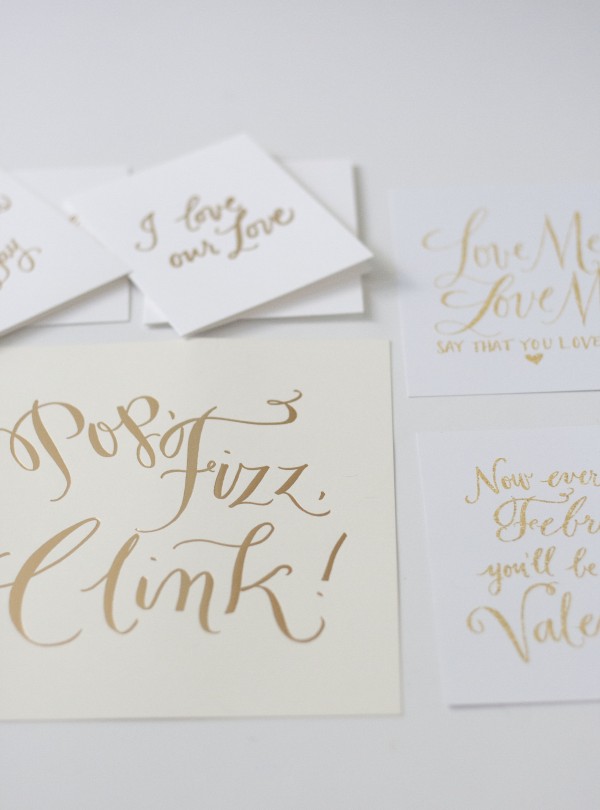 I love
our Love
Love Me
Love M
SAY THAT YOU LOVE
Pop,
Fizz,
Clink!
Now ever
Febr
you'll be
Vale